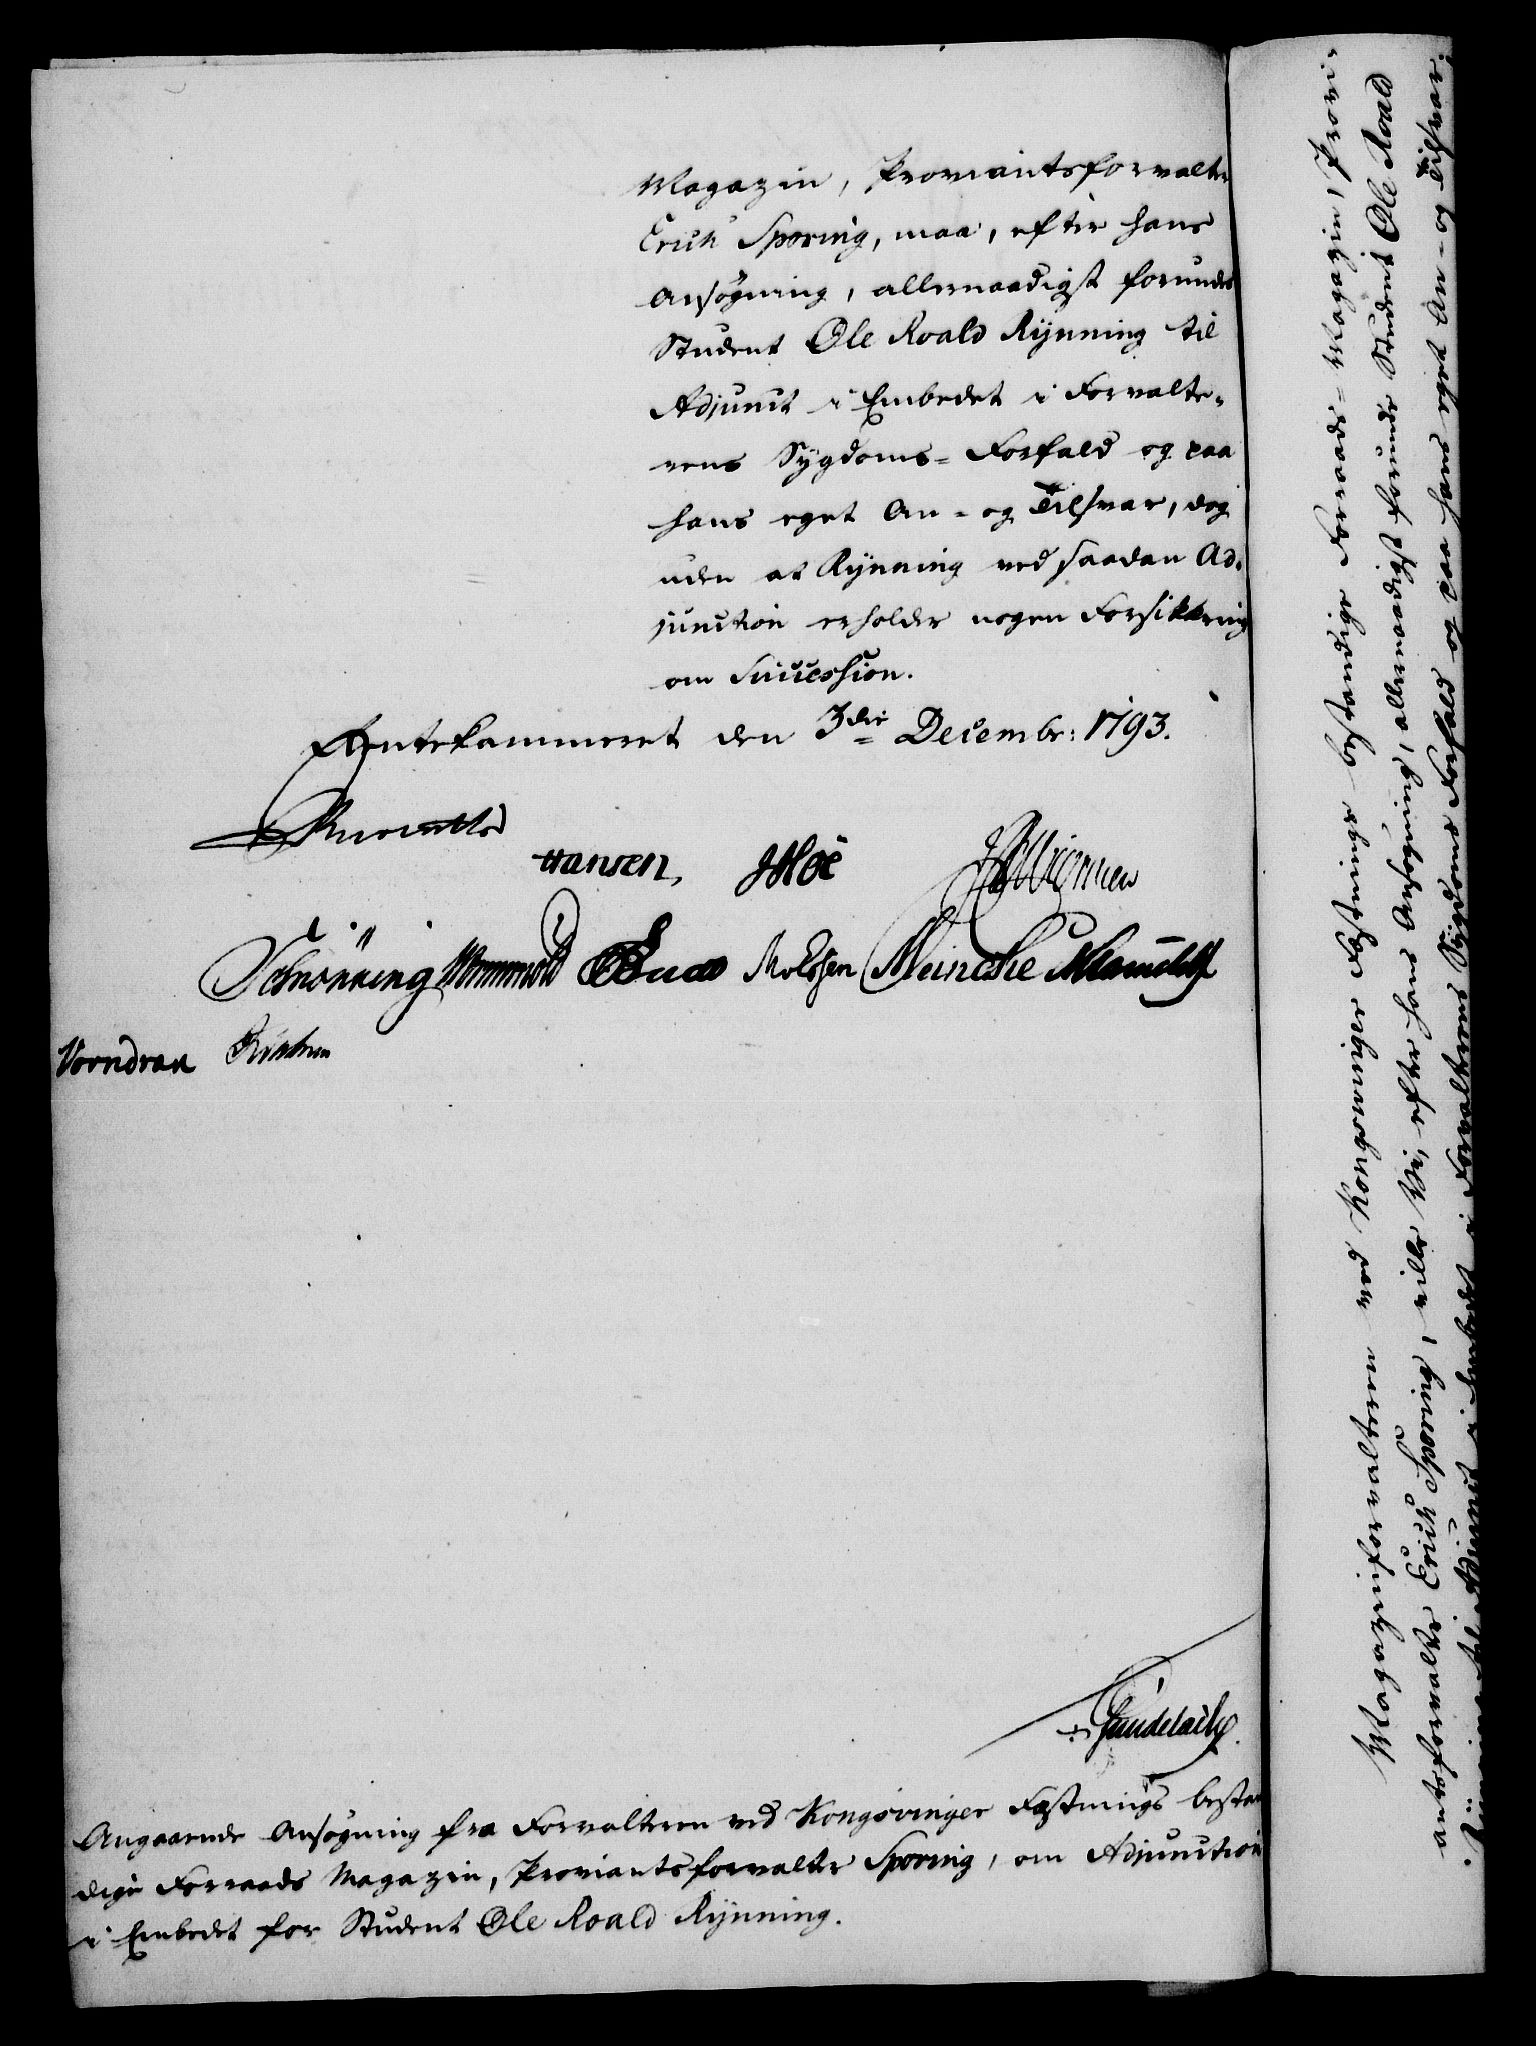 Magazin, Proviantsforvalter
Erich Sporing, maa, efter hans
Ansøgning, allernaadigst forundes
Student Ole Roald Rÿnning til
Adjunct i Embedet i Forvalte-
rens Sÿgdoms-Forfald og paa
hans eget An- og Tilsvar, dog
uden at Rÿnning ved saadan Ad-
junction erholder nogen Forsikkring
om Succession.
Rentekammeret den 3die Decembr: 1793.
Hansen, JHoe
Schønning Meinche
Vorndran
Gundelach.
Angaaende Ansøgning fra Forvalteren ved Kongsvinger Fæstnings bestan
dige Forraads Magazin, Proviantsforvalter Sporing, om Adjunction
i Embedet for Student Ole Roald Rÿnning.
Magazinforvalteren ved Kongsvinger Fæstnings bestandige Forraads-Magazin, Provi-
antsforvalter Erich Sporing, ville Vi, efter hans Ansøgning, allernaadigst forunde Student Ole Roald
Rÿnning til Adjunct i Embedet i Forvalterens Sÿgdoms Forfald og paa hans eget An- og Tilsvar.